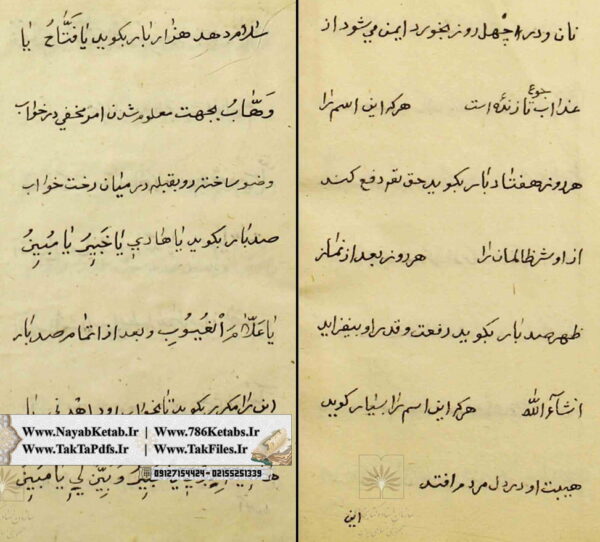 نان و در چهل روز بخورد ایمن می شود از
عذاب جوع تا زنده است هر که این اسم را
هر روز هفتاد بار بکوید حق تع دفع کند
از او شر ظالمان را هر روز بعد از نماز
ظهر صد بار بکوید رفعت و قدر او بیفزاید
انشآء الله هر که این اسم را بسیار کوید
هیبت او در دل مردم افتد
این
سلام دهد هزار بار بکوید یا فَتَّاحُ یا
وَهَّابُ بجهت معلوم شدن امر مخفی در خواب
وضو ساخته رو بقبله در میان رخت خواب
صد بار بکوید یا هادِي یا خَبِیرُ یا مُبِینُ
یا عَلَّامَ الْغُیُوبِ و بعد از اتمام صد بار
این را مکرر بکوید تا بخواب رود
وَ بَیِّنْ لِي یا مُبِینُ
www.NayabKetab.Ir | Www.786Ketabs.Ir
Www.TakTaPdfs.Ir | Www.TakFiles.Ir
09127154424 - 02155251339